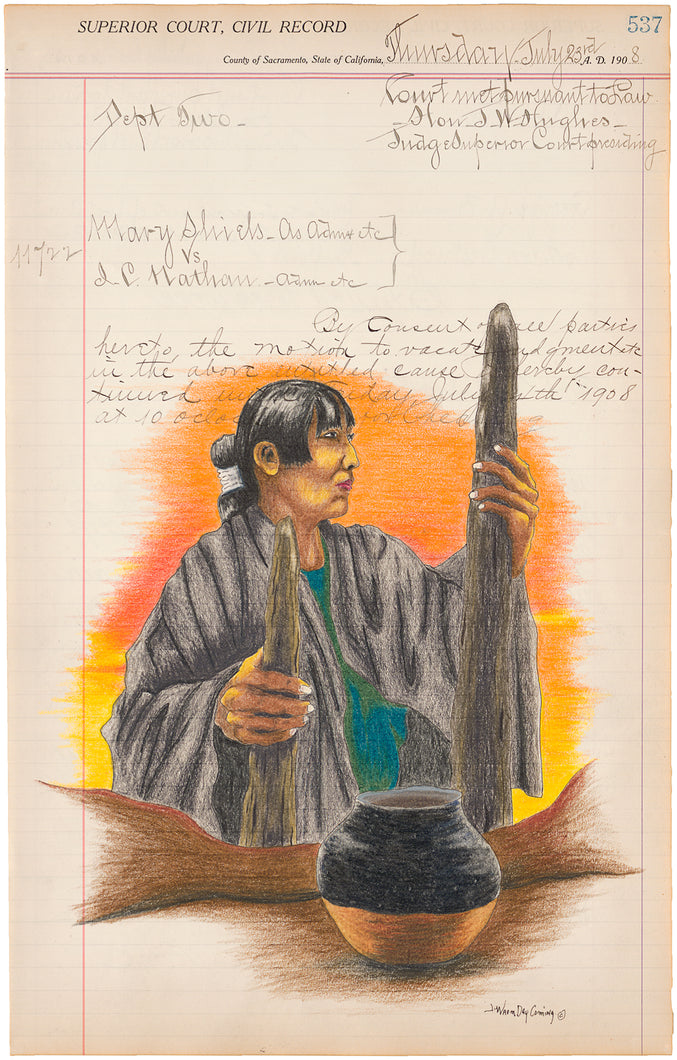 SUPERIOR COURT, CIVIL RECORD
537
County of Sacramento, State of California, Thursday July 23rd A. D. 1908
Court met pursuant to Law
Dept Two —
— Hon J. W. Hughes —
Judge Superior Court presiding
Mary Shiels — As Admx etc
11722
vs
J. C. Nathan — Adm etc
By Consent of all parties
hereto, the motion to vacate judgment etc
in the above entitled cause hereby con-
tinued Friday July 1908
at 10